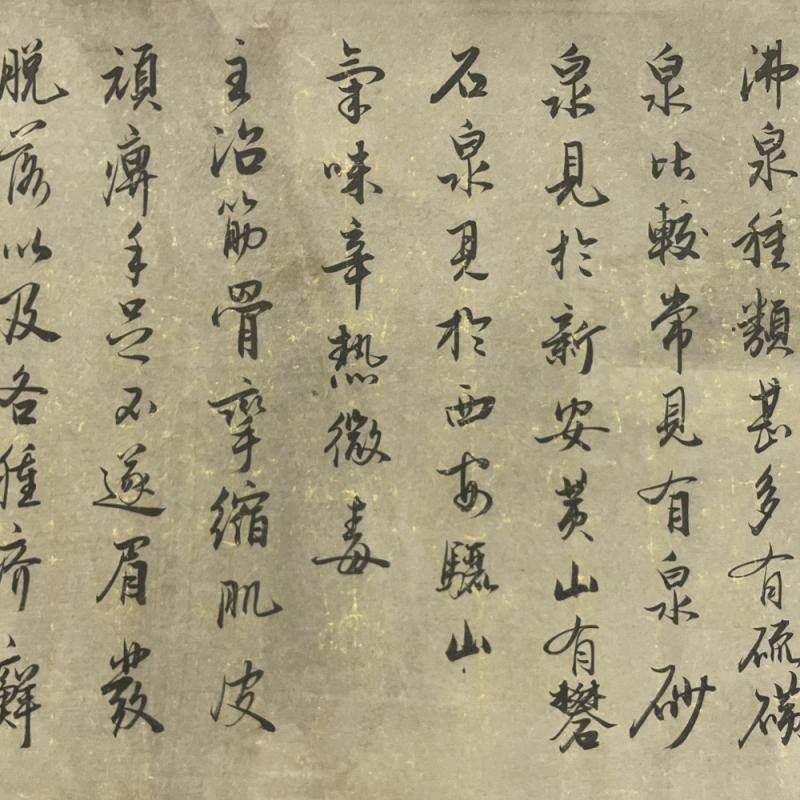 沸泉種類甚多有硫磺
泉比較常見有泉砂
泉見於新安黃山有礬
石泉見於西安驪山
氣味辛熱微毒
主治筋骨攣縮肌皮
頑痹手足不遂眉髮
脫落以及各種疥癬